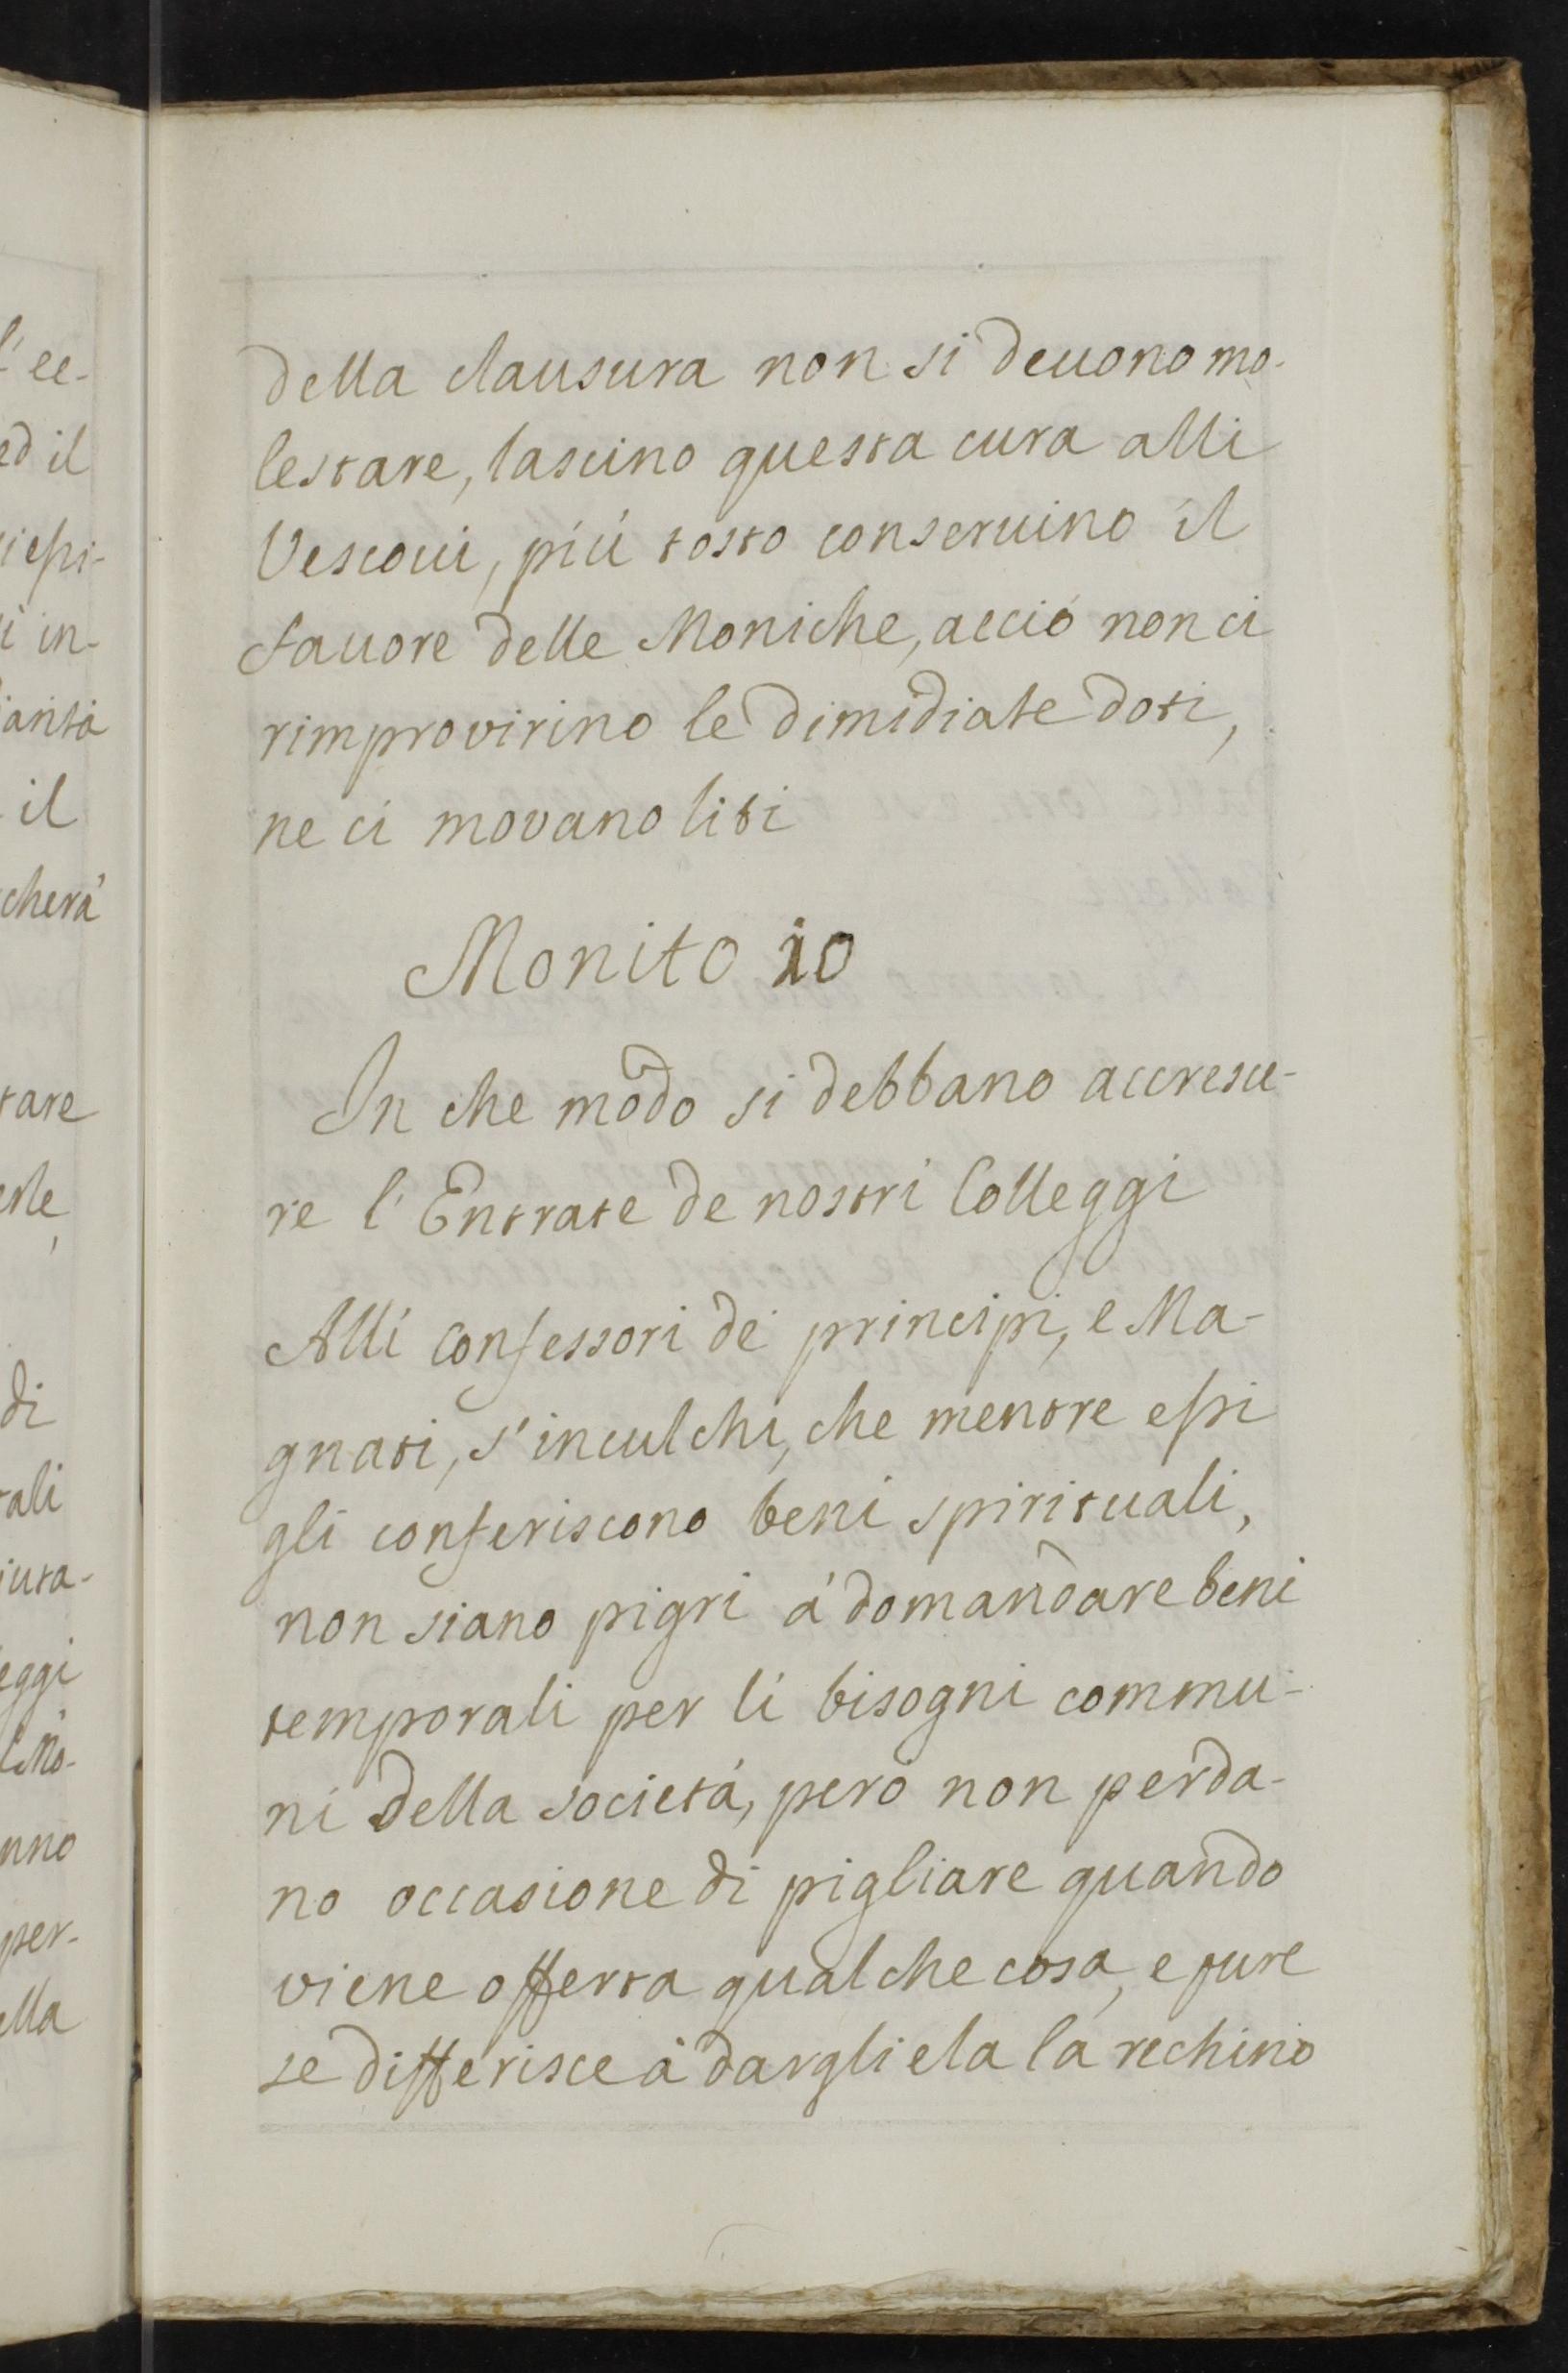 della clausura non si deuono mo-
lestare, lascino questa cura alli
Vescoui, piú tosto conseruino il
fauore delle Moniche, acció non ci
rimprovirino le dimidiate doti,
ne ci movano liti
Monito 10
In che modo si debbano accresce-
re l'Entrate de nostri Colleggi
Alli confessori de principi, e Ma-
gnati, s'inculchi, che mentre essi
gli conferiscono beni spirituali,
non siano pigri á domandare beni
temporali per li bisogni commu-
ni della societá, peró non perda-
no occasione di pigliare quando
viene offerta qualche cosa, e pure
se differisce á dargliela la rechino